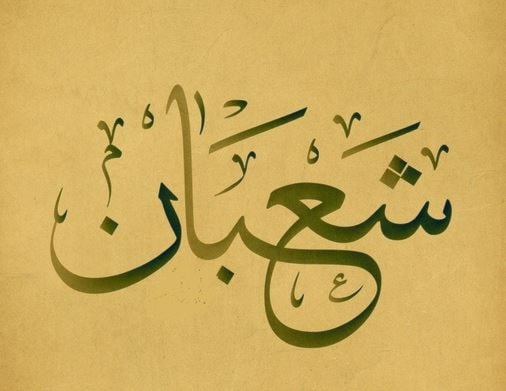 شَعْبَان